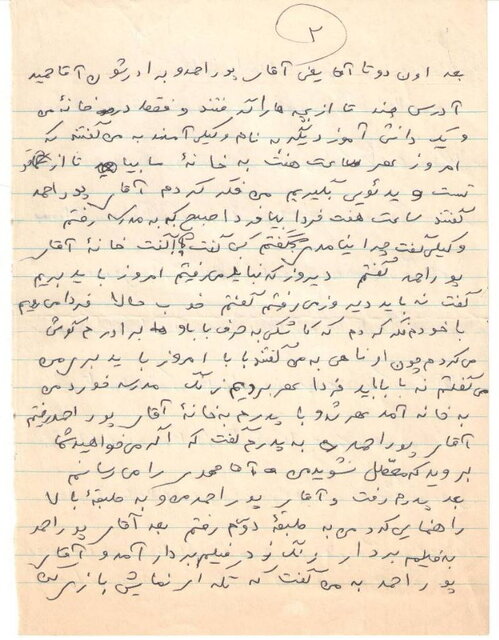 ۲
بعد اون دو تا آقا یعنی آقای پور احمد و برادرشون آقا حمید
آدرس چند تا از بچه ها را گرفتند و فقط در خانهٔ من
و یک دانش آموز دیگه به نام وکیلی آمدند به من گفتند که
امروز عصر ساعت هفت به خانهٔ ما بیا تا از تو
تست ویدئویی بگیریم من فکر کردم آقای پور احمد
گفتند ساعت هفت فردا بیا فردا صبح که به مدرسه رفتم
وکیلی گفت چرا نیامدی گفتم کی گفت خانهٔ آقای
پور احمد گفتم دیروز که نباید می رفتیم امروز باید بریم
گفت نه باید دیروز می رفتیم گفتم خوب حالا فردا می رویم
با خودم فکر کردم که کاشکی به حرف بابا و برادرم گوش
می کردم چون اونا هی به من گفتند بابا امروز باید بری من
می گفتم نه بابا باید فردا عصر برویم زنگ مدرسه خورد من
به خانه آمدم عصر شد و با پدرم به خانهٔ آقای پور احمد رفتم
آقای پور احمد به پدرم گفت که اگه می خواهید شما
بروید که معطل نشوید من آقا مهدی را می رسانم
بعد پدرم رفت و آقای پور احمد من و به طبقهٔ بالا
راهنمایی کرد من به طبقهٔ دوم رفتم بعد آقای پور احمد
به فیلم بردار زنگ زد فیلم بردار آمد و آقای
پور احمد به من گفت که تکه ای نمایش بازی کن